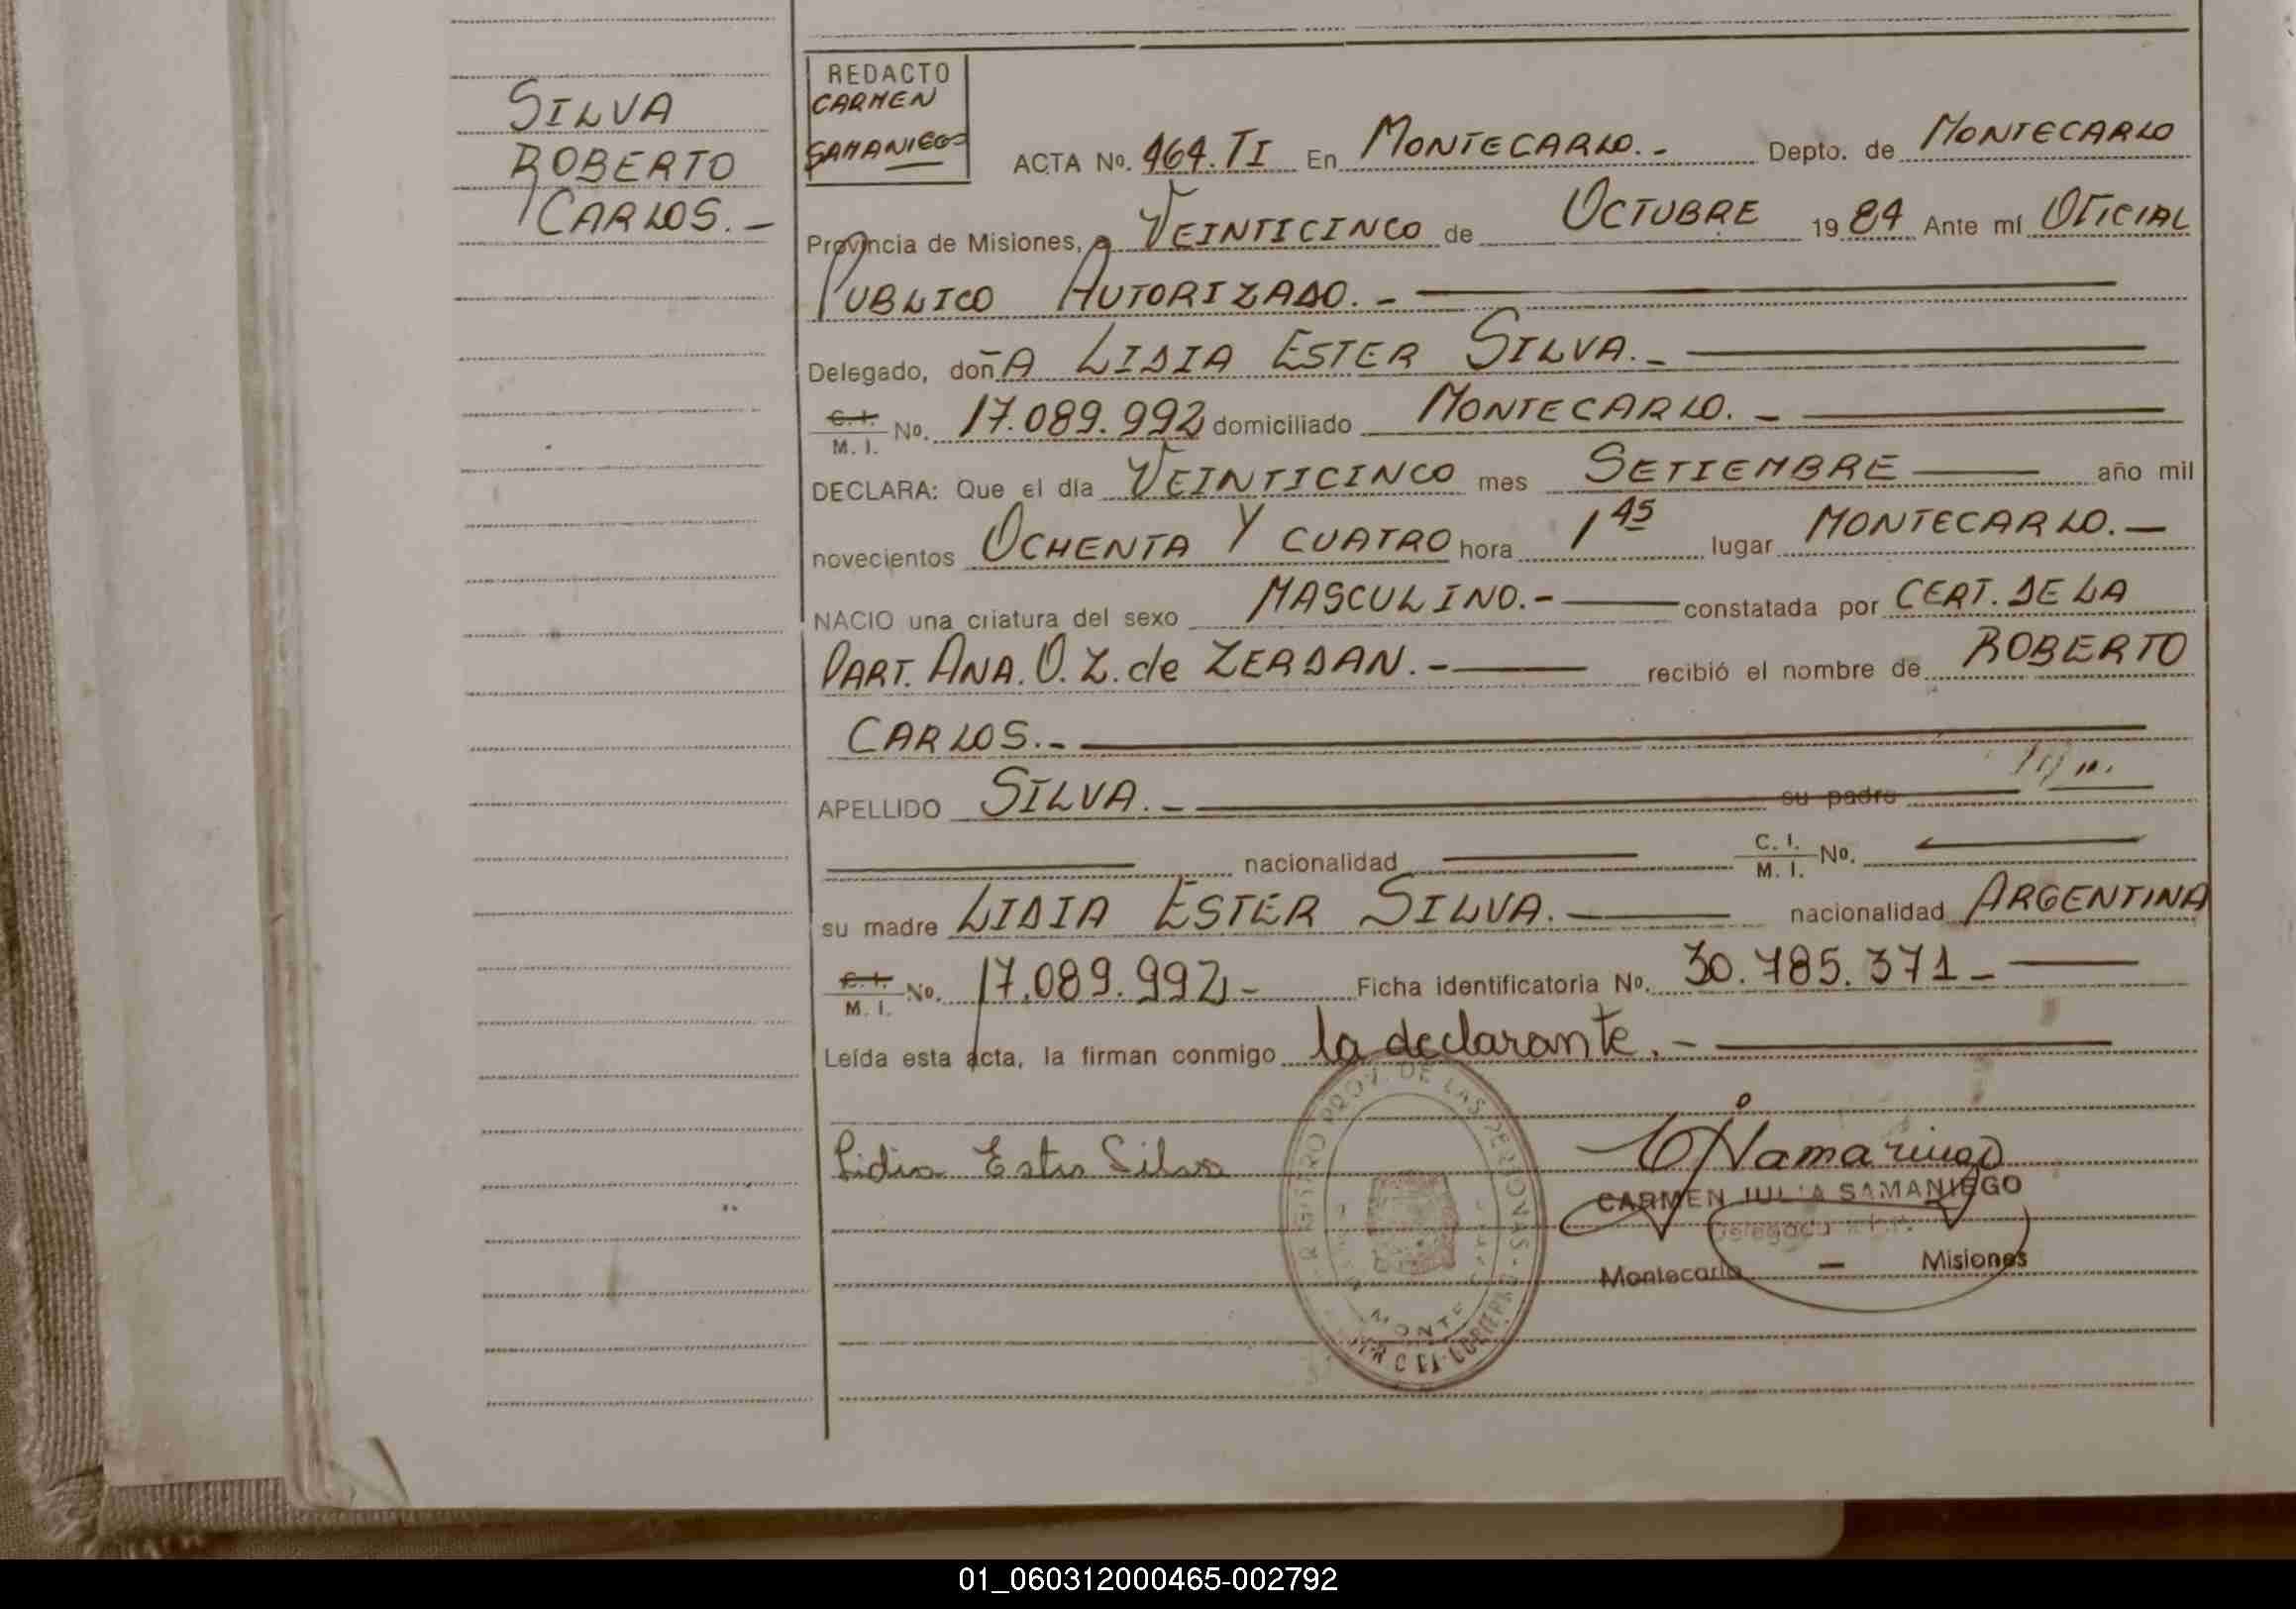 SILVA
ROBERTO
CARLOS.-
REDACTO
CARMEN
SAMANIEGO
ACTA No. 464. TI En MONTECARLO.- Depto. de MONTECARLO
Provincia de Misiones, a VEINTICINCO de OCTUBRE 1984 Ante mí OFICIAL
PUBLICO AUTORIZADO.-
Delegado, doñA LIDIA ESTER SILVA.-
C. I.
M. I. No. 17.089.992 domiciliado MONTECARLO.-
DECLARA: Que el día VEINTICINCO mes SETIEMBRE año mil
novecientos OCHENTA Y CUATRO hora 1 45 lugar MONTECARLO.-
NACIO una criatura del sexo MASCULINO.- constatada por CERT. DE LA
PART. ANA. O. Z. de ZERDAN.- recibió el nombre de ROBERTO
CARLOS.-
APELLIDO SILVA.- su padre
nacionalidad C. I. M. I. No.
su madre LIDIA ESTER SILVA.- nacionalidad ARGENTINA
C. I.
M. I. No. 17.089.992,- Ficha identificatoria No. 30.785.371-
Leída esta acta, la firman conmigo la declarante.-
Lidia Ester Silva
CARMEN JULIA SAMANIEGO
Delegada
Montecarlo - Misiones
REGISTRO PROV. DE LAS PERSONAS
MONTE
01_060312000465-002792